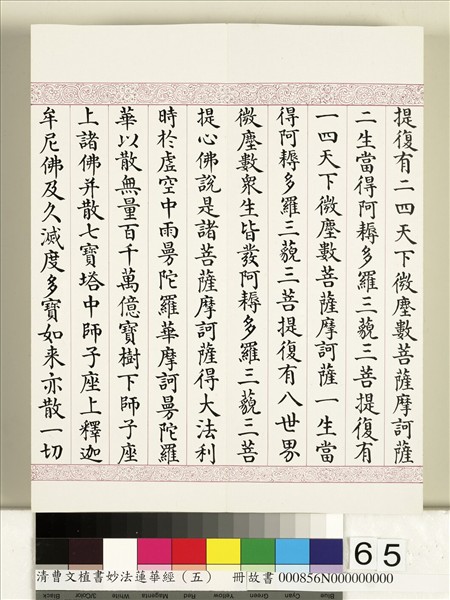 提復有二四天下微塵數菩薩摩訶薩
二生當得阿耨多羅三藐三菩提復有
一四天下微塵數菩薩摩訶薩一生當
得阿耨多羅三藐三菩提復有八世界
微塵數衆生皆發阿耨多羅三藐三菩
提心佛說是諸菩薩摩訶薩得大法利
時於虛空中雨曼陀羅華摩訶曼陀羅
華以散無量百千萬億寶樹下師子座
上諸佛并散七寶塔中師子座上釋迦
牟尼佛及久滅度多寶如來亦散一切
65
清曹文植書妙法蓮華經（五） 冊故書 000856N000000000
Black 3/Color White Magenta Red Yellow Green Cyan Blue